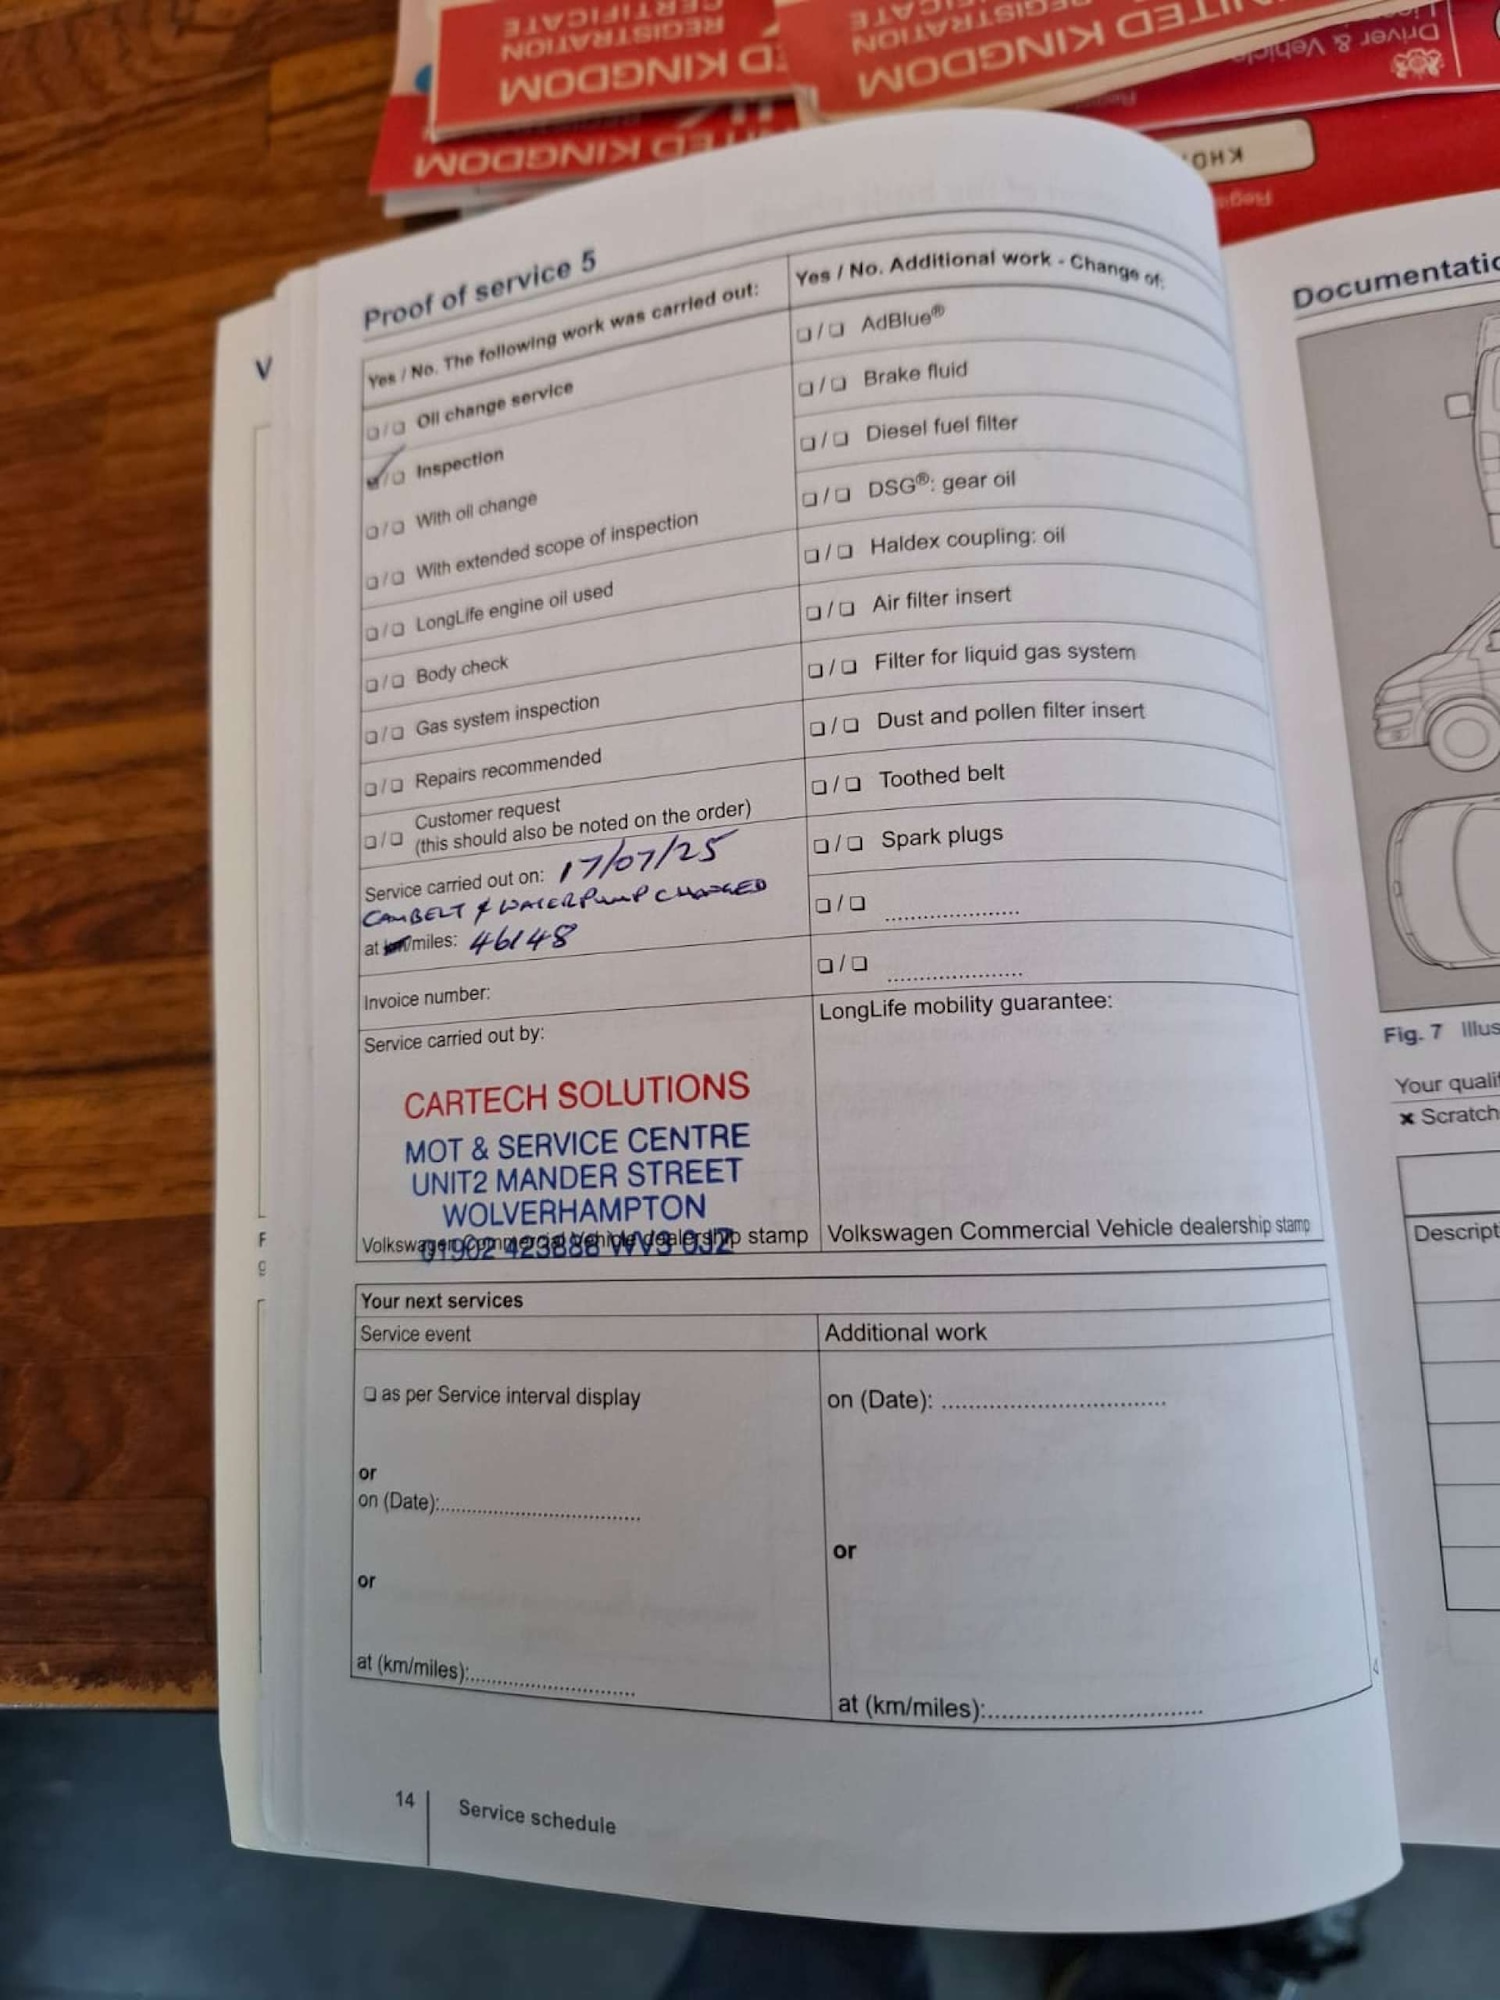 UNITED KINGDOM
REGISTRATION
Driver & Vehicle
UNITED KINGDOM
KHO
Proof of service 5
Yes / No. The following work was carried out:
❑/❑ Oil change service
☑/❑ Inspection
❑/❑ With oil change
❑/❑ With extended scope of inspection
❑/❑ LongLife engine oil used
❑/❑ Body check
❑/❑ Gas system inspection
❑/❑ Repairs recommended
❑/❑ Customer request
(this should also be noted on the order)
Service carried out on: 17/07/25
CAMBELT & WATERPUMP CHANGED
at km/miles: 46148
Invoice number:
Service carried out by:
CARTECH SOLUTIONS
MOT & SERVICE CENTRE
UNIT2 MANDER STREET
WOLVERHAMPTON
01902 423888 WV3 0JZ
Volkswagen Commercial Vehicle dealership stamp
Yes / No. Additional work - Change of:
❑/❑ AdBlue®
❑/❑ Brake fluid
❑/❑ Diesel fuel filter
❑/❑ DSG®: gear oil
❑/❑ Haldex coupling: oil
❑/❑ Air filter insert
❑/❑ Filter for liquid gas system
❑/❑ Dust and pollen filter insert
❑/❑ Toothed belt
❑/❑ Spark plugs
❑/❑ ......................
❑/❑ ......................
LongLife mobility guarantee:
Volkswagen Commercial Vehicle dealership stamp
Your next services
Service event
❑ as per Service interval display
or
on (Date):..................................
or
at (km/miles):............................
Additional work
on (Date): ..................................
or
at (km/miles):..................................
14
Service schedule
V
F
g
Documentatio
Fig. 7 Illus
Your qualif
✖ Scratch
Descript